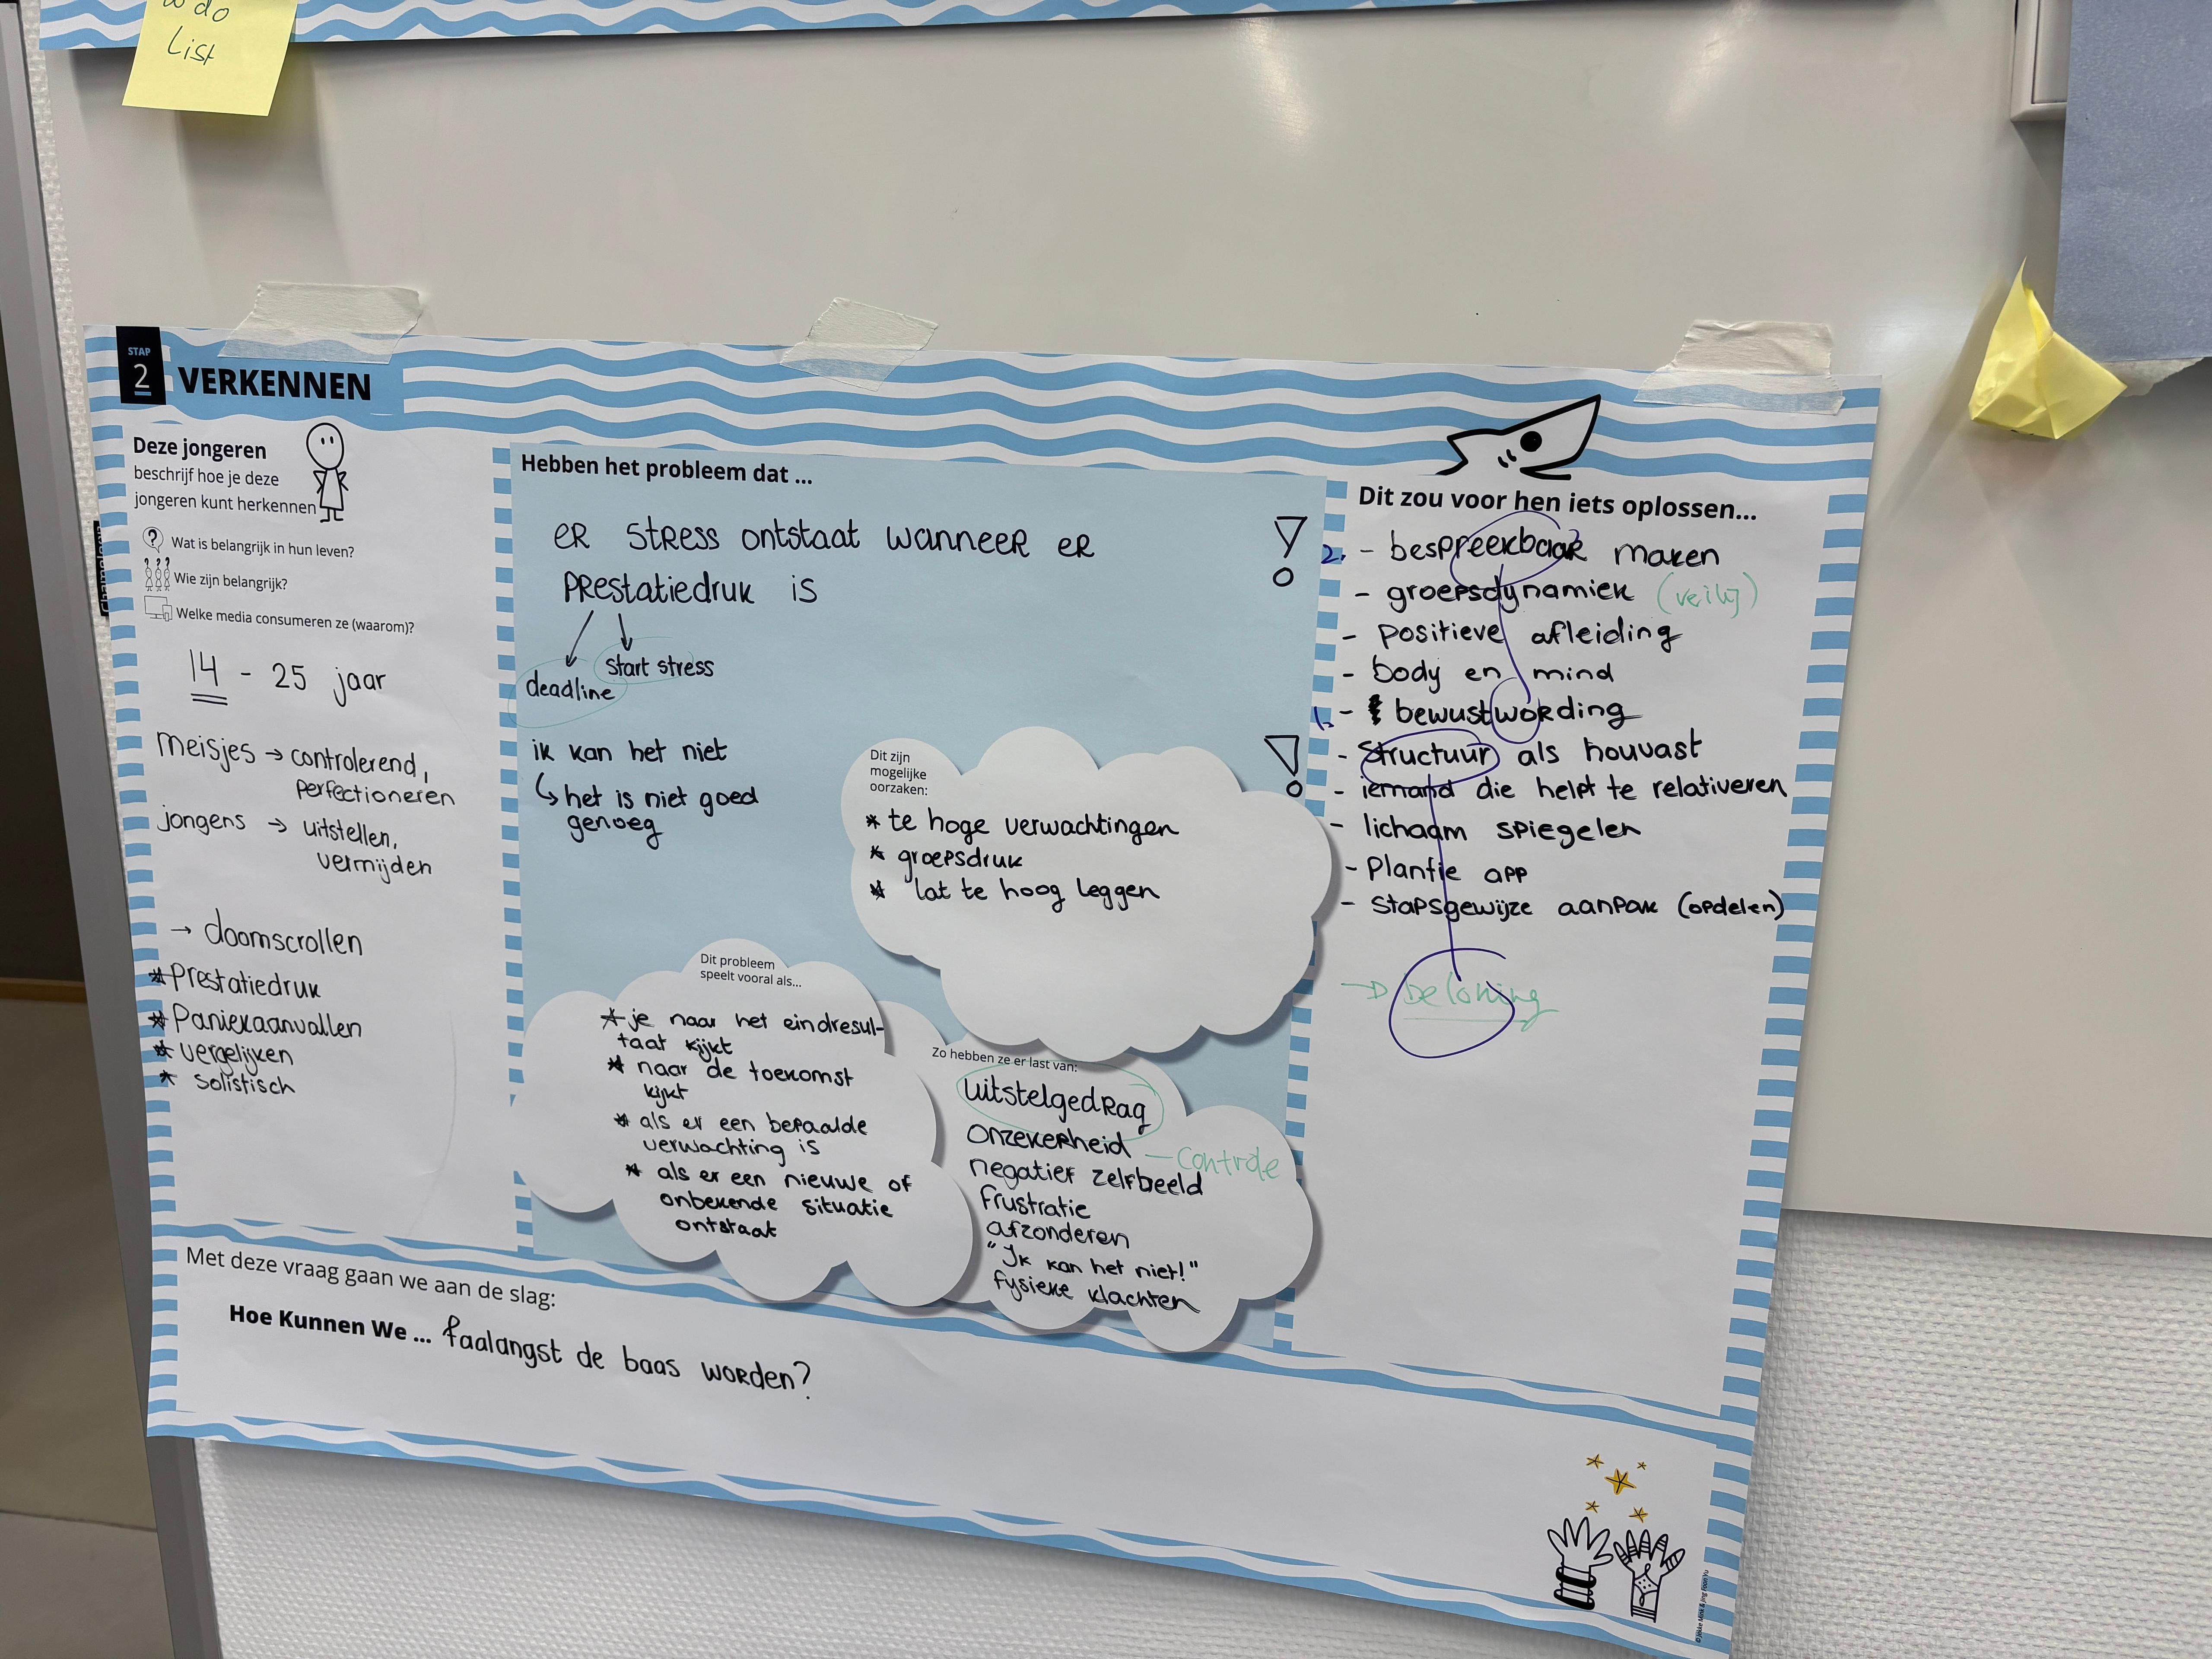 do
List
STAP
2
VERKENNEN
Deze jongeren
beschrijf hoe je deze
jongeren kunt herkennen
Wat is belangrijk in hun leven?
Wie zijn belangrijk?
Welke media consumeren ze (waarom)?
14 - 25 jaar
meisjes → controlerend,
perfectioneren
jongens → uitstellen,
vermijden
→ doomscrollen
* Prestatiedruk
* Paniekaanvallen
* vergelijken
* solistisch
Hebben het probleem dat ...
ER STRESS ontstaat wanneer er
prestatiedruk is
start stress
deadline
ik kan het niet
↳ het is niet goed
genoeg
Dit zijn
mogelijke
oorzaken:
* te hoge verwachtingen
* groepsdruk
* lat te hoog leggen
Dit probleem
speelt vooral als...
* je naar het eindresul-
taat kijkt
* naar de toekomst
kijkt
* als er een bepaalde
verwachting is
* als er een nieuwe of
onbekende situatie
ontstaat
Zo hebben ze er last van:
uitstelgedrag
onzekerheid
— controle
negatief zelfbeeld
frustratie
afzonderen
"Ik kan het niet!"
fysieke klachten
Dit zou voor hen iets oplossen...
2. - bespreekbaar maken
- groepsdynamiek (veilig)
- positieve afleiding
- body en mind
1. - bewustwording
- structuur als houvast
- iemand die helpt te relativeren
- lichaam spiegelen
- Plantie app
- stapsgewijze aanpak (opdelen)
→ beloning
Met deze vraag gaan we aan de slag:
Hoe Kunnen We ... faalangst de baas worden?